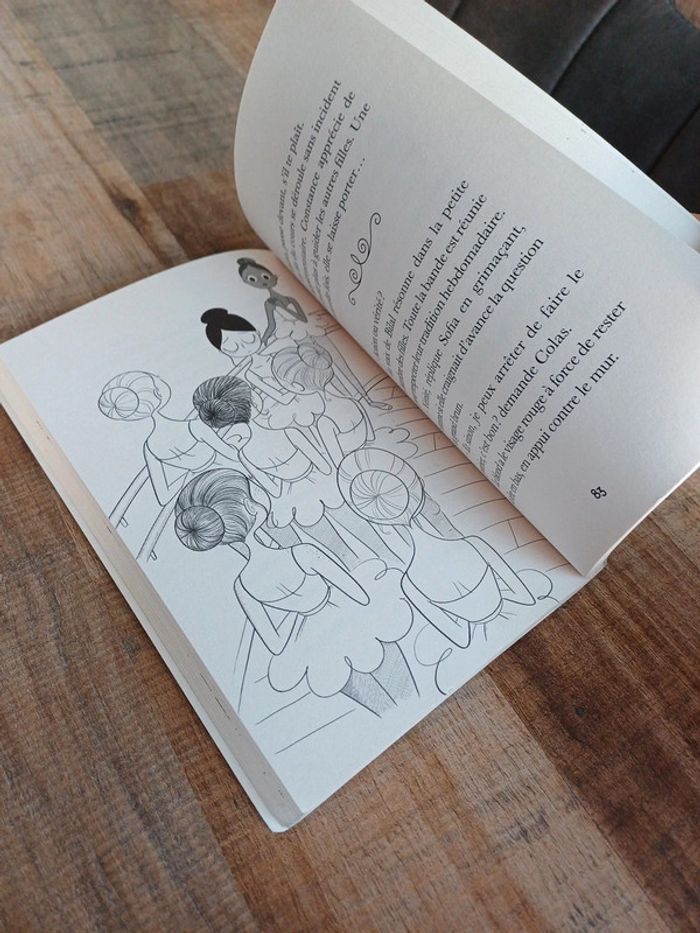 passe devant, s'il te plaît.
du cours se déroule sans incident
Constance apprécie de
à guider les autres filles. Une
elle se laisse porter…
ou vérité ?
de Bilal résonne dans la petite
des filles. Toute la bande est réunie
respecter leur tradition hebdomadaire.
réplique Sofia en grimaçant,
si elle craignait d'avance la question
grand brun.
sinon, je peux arrêter de faire le
c'est bon ? demande Colas.
a le visage rouge à force de rester
en bas, en appui contre le mur.
83